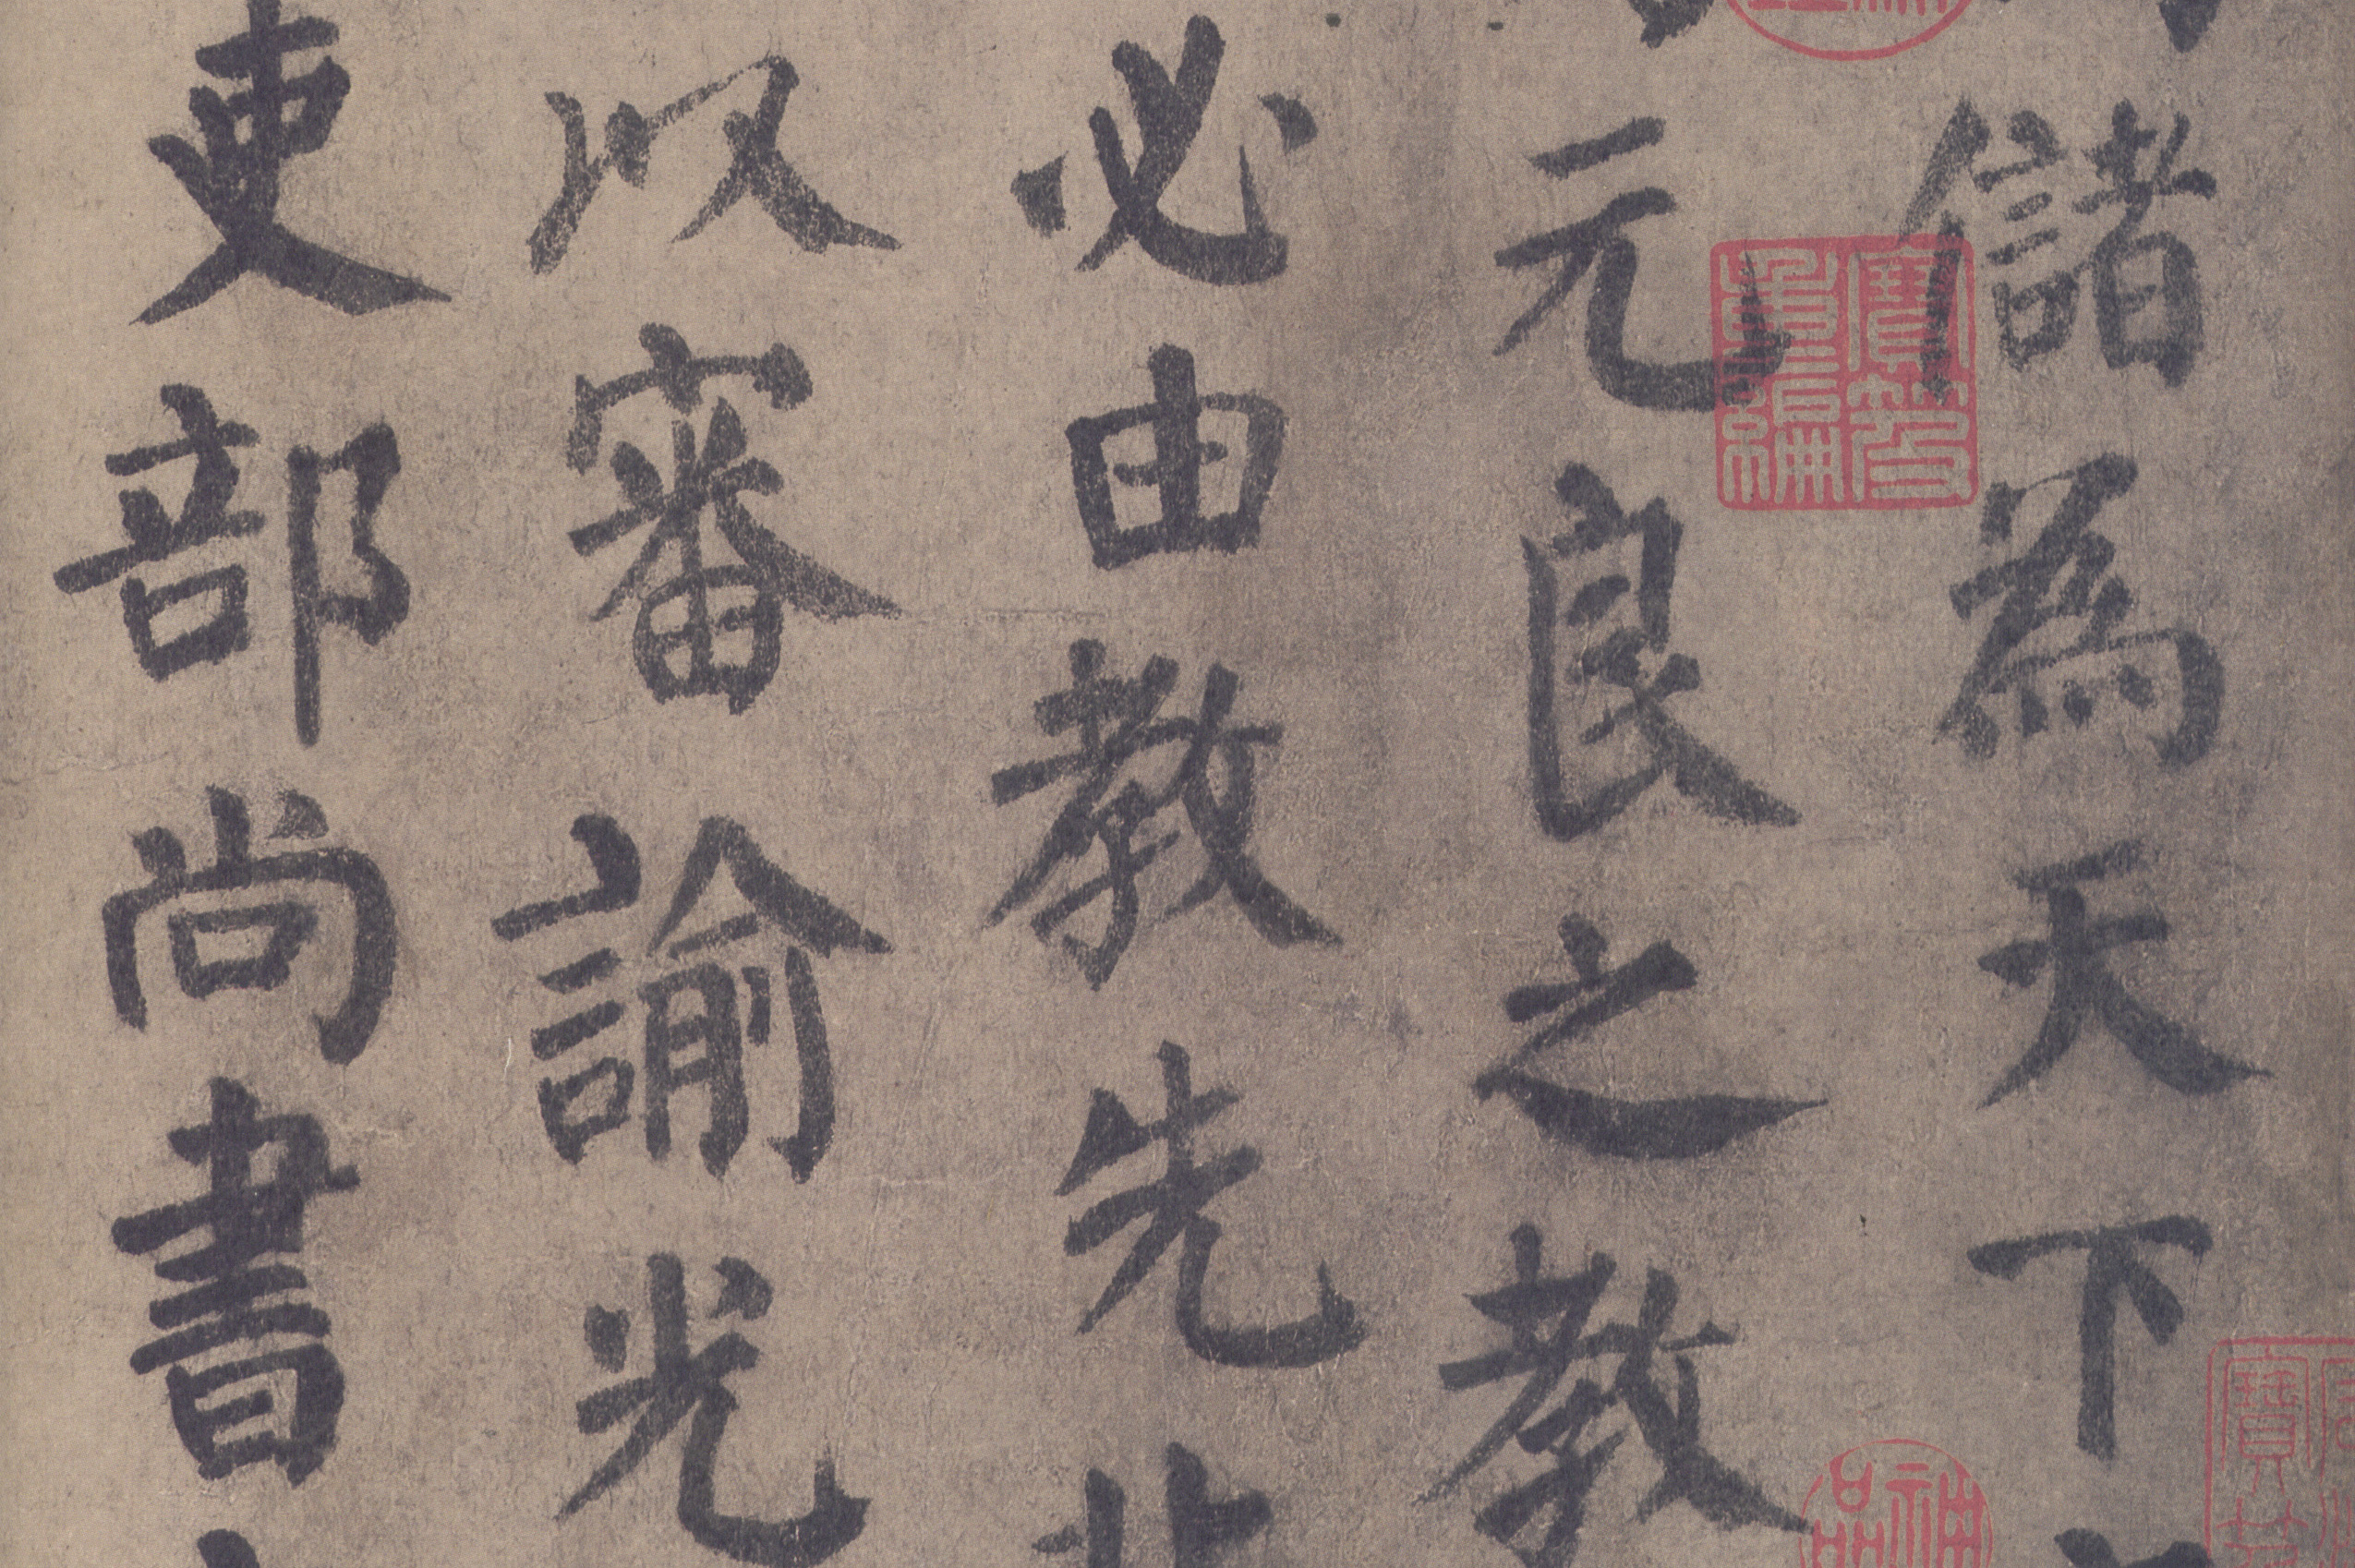 儲為天下
元良之教
必由教先
以審諭光
吏部尚書
寶笈重編